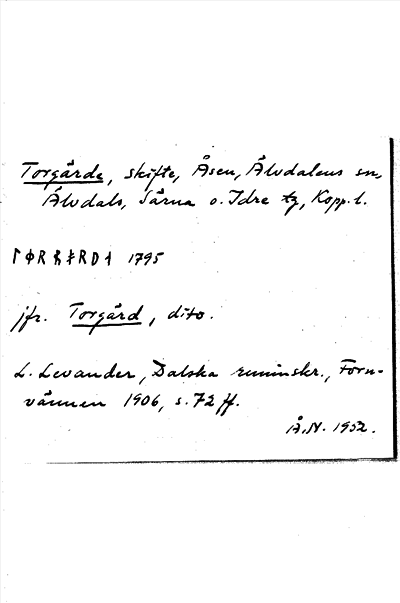 Torgärde, skifte, Åsen, Älvdalens sn,
Älvdals, Särna o. Idre tg, Kopp. l.
ᛚᚯᚱ ᚱᛂᚱᚦ 1795
jfr. Torgård, dito.
L. Levander, Dalska runinskr., Forn-
vännen 1906, s. 72 ff.
Å.N. 1932.